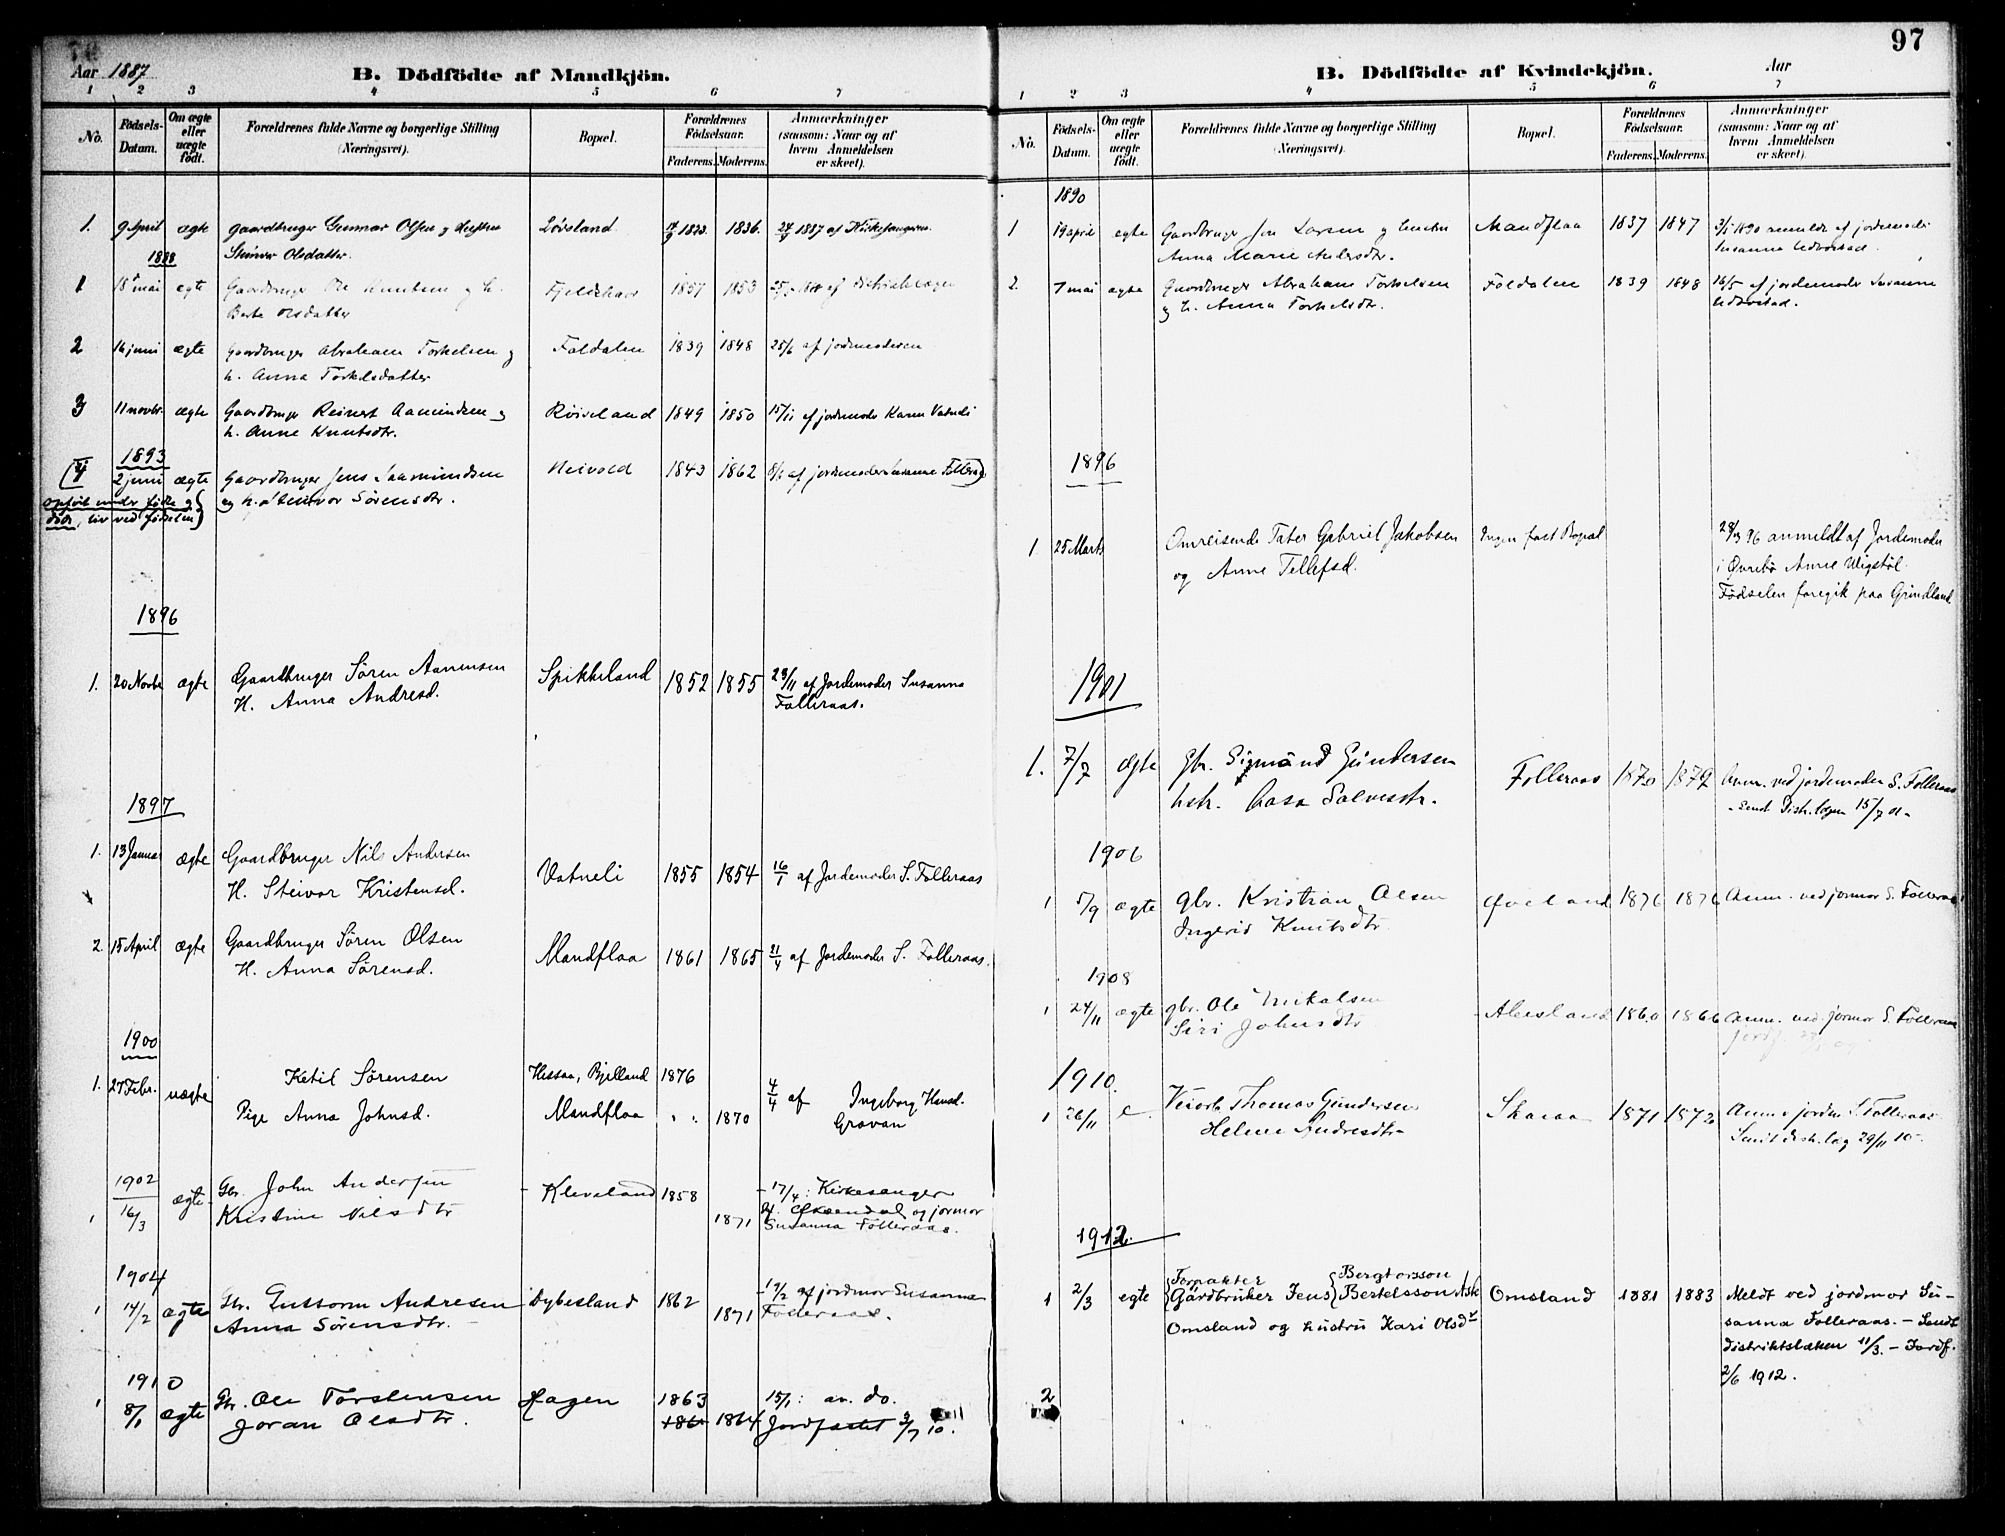 Aar 1887
B. Dödfödte af Mandkjön.
1 2 3 4 5 6 7
No. Födsels-Datum. Om ægte eller uægte födt. Forældrenes fulde Navne og borgerlige Stilling (Næringsvei). Bopæl. Forældrenes Födselsaar. Faderens. Moderens. Anmærkninger (saasom: Naar og af hvem Anmeldelsen er skeet).
1. 9 April ægte Gaardbruger Gunnar Olsen og Hustru Lövsland 1836. 1887 af Kirkesangeren
Olsdatter.
1888
1 15 mai ægte Gaardbruger Ole Knutsen og h. 1857 1853 af distriktslægen
Berte Olsdatter
2 16 juni ægte Gaardbruger Abraham Torkelsen og Foldalen 1839 1848 25/6 af jordmoderen
h. Anna Torkelsdatter
3 11 novbr. ægte Gaardbruger Reinert Aamundsen og Röiseland 1849 1850 15/11 af jordmoder Karen Vatneli
h. Anne Knutsdtr.
1893
2 juni ægte Gaardbruger Jens Aamundsen Heivold 1843 1862 af jordmoder Susanne Folleraas
og h. Steinvor Sörensdtr.
opfört under födte og
döde, liv ved födselen)
1896
1. 20 Novbr ægte Gaardbruger Sören Aanensen Spikkeland 1852 1855 23/11 af Jordemoder Susanna
H. Anna Andresd. Folleraas.
1897
1. 13 Januar ægte Gaardbruger Nils Andersen Vatneli 1855 1854 16/1 af Jordemoder S. Folleraas
H. Steivor Kristensd.
2. 15 April ægte Gaardbruger Sören Olsen Mandflaa 1861 1865 21/4 af Jordemoder S. Folleraas.
H. Anna Sörensd.
1900
1. 27 Febr. uægte Ketil Sørensen Hessaa, Bjelland 1876 4/4 af Ingeborg Hansd.
Pige Anna Johnsd. Mandflaa 1870 Gravan
1902
1 16/3 ægte Gbr. John Andersen Kleveland 1858 17/4: Kirkesanger
Kristine Nilsdtr 1871 og jormor
Susanna Folleraas.
1904
1 14/2 ægte Gbr. Gussorm Andresen Dybesland 1862 19/2 af jordmor Susanna
Anna Sörensdtr. 1871 Folleraas.
1910
1 8/1 ægte Gbr. Ole Torstensen Hagen 1863 15/1: an. do.
Joran Olsdtr. 1861 1864 Jordfæstet 3/7 10.
97
B. Dödfödte af Kvindekjön. Aar
1 2 3 4 5 6 7
No. Födsels-Datum. Om ægte eller uægte födt. Forældrenes fulde Navne og borgerlige Stilling (Næringsvei). Bopæl. Forældrenes Födselsaar. Faderens. Moderens. Anmærkninger (saasom: Naar og af hvem Anmeldelsen er skeet).
1890
1 19 april ægte Gaardbruger Jens Larsen og hustru Mandflaa 1837 1847 1890 anmeldt af jordemoder
Anna Marie Andersdtr. Susanne Udvostad.
2. 7 mai ægte Gaardbruger Abraham Torkelsen Foldalen 1839 1848 16/5 af jordemoder Susanne
og h. Anna Torkelsdtr. Udvostad.
1896
1. 25 Marts Omreisende Tater Gabriel Jakobsen Ingen fast Bopæl 28/3 96 anmeldt af Jordemoder
og Anne Tellefsd. i Øvrebö Anne Uigstöl.
Födselen foregik paa Grindland
1901
1. 7/7 ægte Gbr. Sigmund Gundersen Folleraas 1870 1872 Anm. ved jordemoder S. Folleraas
hstr. Aasa Salvesdtr. Sendt Distr. lægen 15/7 01.
1906
1 5/9 ægte gbr. Kristian Olsen Øveland 1876 1876 Anm. ved jormor S. Folleraas
Ingerid Knutsdtr
1908
1 24/11 ægte gbr. Ole Mikalsen 1860 1866 Anm. ved jormor S. Folleraas
Siri Johnsdtr
1910.
1 26/11 Thomas Gundersen Skaraa 1871 1872 Anm. jordm S. Folleraas
Helene Andresdtr Sent distr. læg 29/11 10
1912.
1 2/3 egte Forpakter Bergtorsson
Gårdbruker Jens Bertelsson Omsland 1881 1883 Meldt ved jordmor Su-
Omsland og hustru Kari Olsdtr sanna Folleraas. – Sendt
distriktslæken 11/3. – Jordf.
2/6 1912.
2